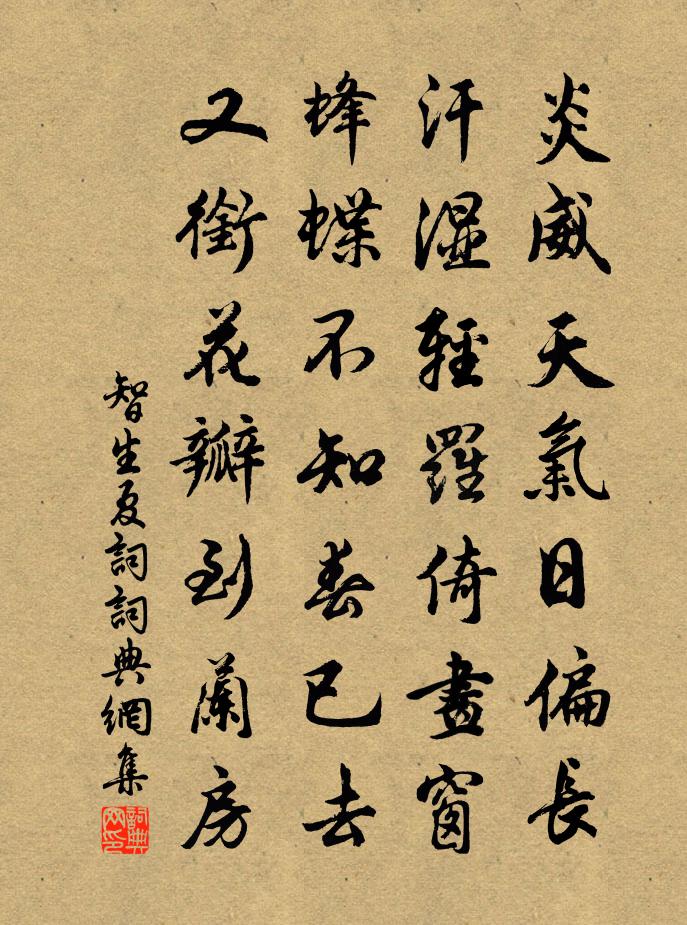 炎威天氣日偏長
汗濕輕羅倚畫窗
蜂蝶不知春已去
又銜花瓣到蘭房
智生夏詞詞典網集
詞典網印